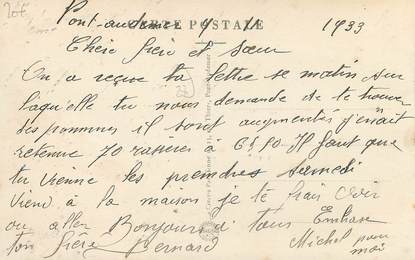 Pont-audemer 9 1933
CARTE POSTALE
Chère frère et sœur
On a reçue ta lettre se matin sur
laquelle tu nous demande de te trouver
des pommes il sont augmentés j'enait
retenue 70 rasieres a 6f50 Il faut que
tu vienne les prendres samedi
viend à la maison je te ferai voir
ou aller Bonjours a tous Embrase
ton frère Bernard Michel pour
moi